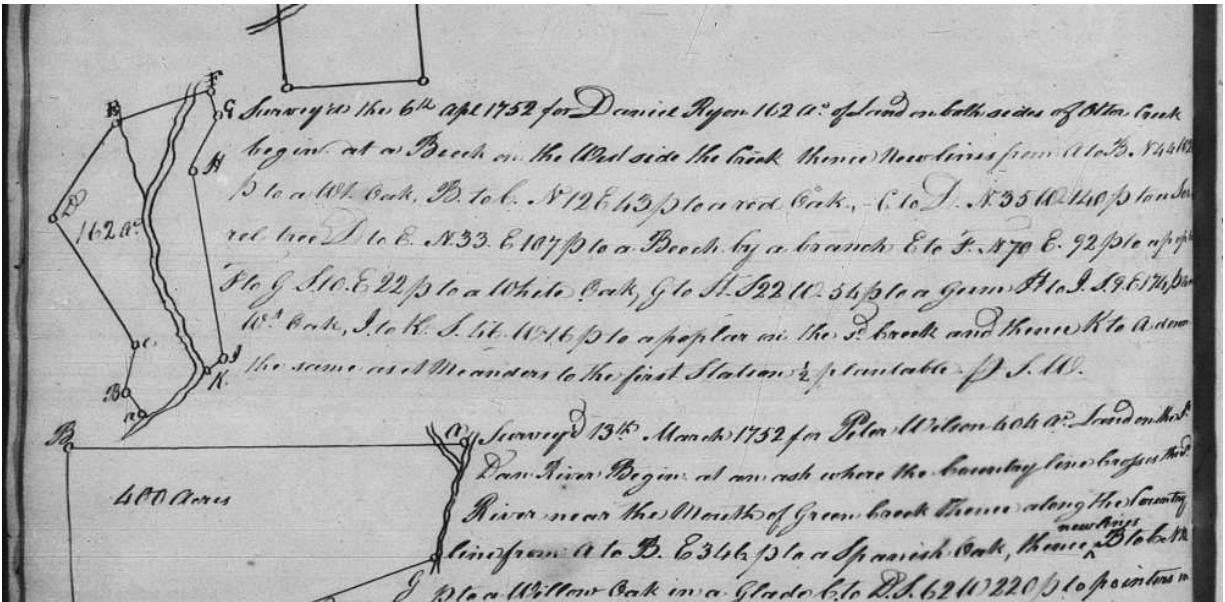 E
F
G
H
D
162 as.
C
B
a
I
K
Survey'd the 6th Apl 1752 for Daniel Ryon 162 as. of Land on both sides of Otter Creek
begin at a Beech on the West side the Creek thence New lines from A to B. N44W
p to a Wt. Oak, B. to C. N12E43p to a red Oak, C to D. N.35W140p to a Sor
rel tree D to E. N33.E107p to a Beech by a branch E to F. N70 E. 92p to a
F to G S10.E22p to a White Oak, G to H. S22W.54p to a Gum H to I. S.9.E174p
Wt Oak, I. to K. S.46.W16p to a poplar on the sd. Creek and thence K to A down
the same as it Meanders to the first Station ½ plantable p S.W.
B
A
400 Acres
G
Survey'd 13th March 1752 for Peter Wilson 404 as. Land on the So.
Dan River Begin at an ash where the Country line Crosses the sd.
River near the Mouth of Green Creek thence along the Country
line from A to B. E346p to a Spanish Oak, thence new lines B to C.
p to a Willow Oak in a Glade C to D.S.62W220p to pointers in